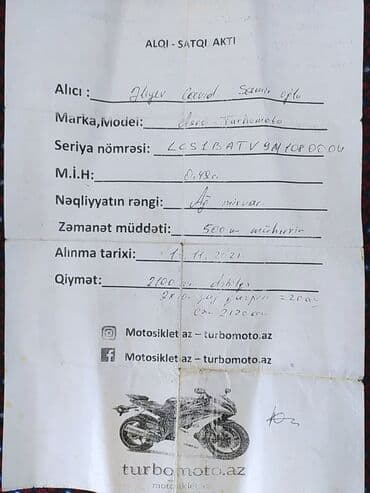 ALQI - SATQI AKTI
Alıcı : Əliyev Cavid Samir oğlu
Marka,Model: - Turbomoto
Seriya nömrəsi: LCS1BATV9M1080006
M.İ.H:
Nəqliyyatın rəngi: Ağ
Zəmanət müddəti: 500 km mühərrik
Alınma tarixi: 11. 2021
Qiymət: 2100
= 20
2120
Motosiklet.az – turbomoto.az
Motosiklet.az – turbomoto.az
turbomoto.az
motosiklet.az